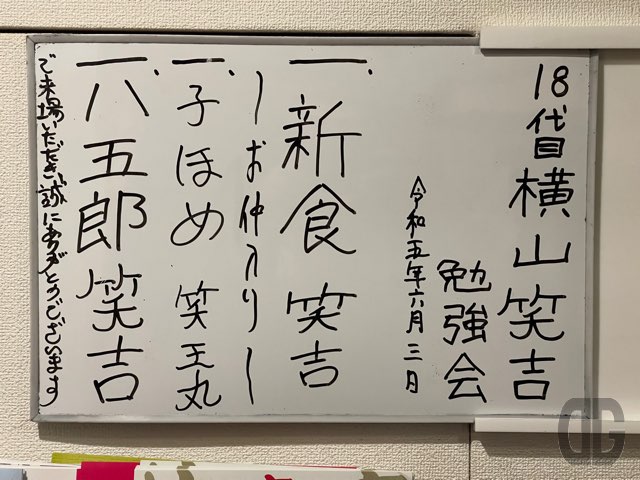 18代目横山笑吉
勉強会
令和五年六月三日
一、新食 笑吉
〜お仲入り〜
一、子ほめ 笑王丸
一、八五郎 笑吉
ご来場いただき、誠にありがとうございます
DG